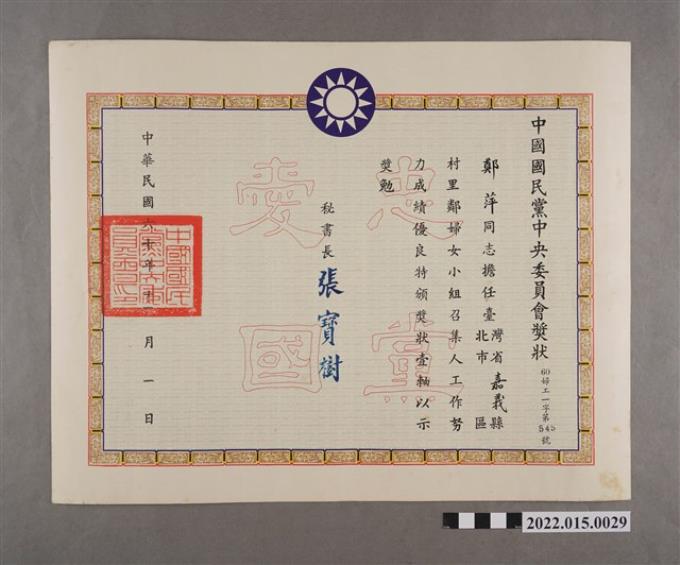 中國國民黨中央委員會獎狀
60婦工一字第545號
鄭萍同志擔任臺灣省嘉義縣
北市 區
村里鄰婦女小組召集人工作努
力成績優良特頒獎狀壹軸以示
獎勉
秘書長 張寶樹
中華民國六十年十一月一日
忠黨
愛國
中國國民
黨中央委
員會之印
2022.015.0029